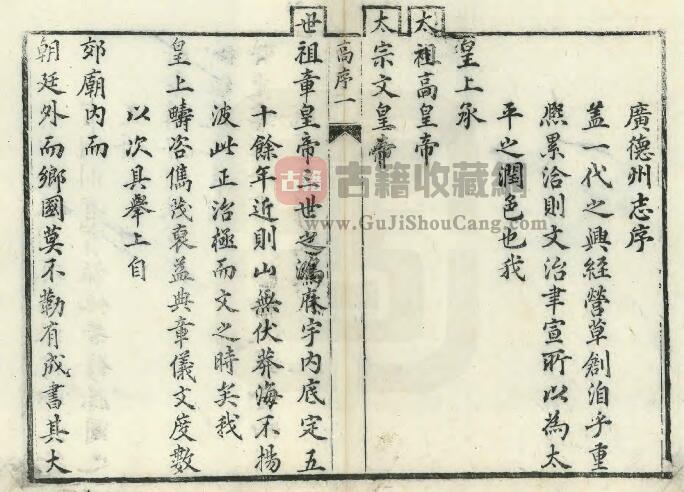 廣德州志序
盖一代之興經營草創洎乎重
熈累洽則文治聿宣所以為太
平之潤色也我
皇上承
太祖高皇帝
太宗文皇帝
高序一
世祖章皇帝三世之鴻庥宇内底定五
十餘年近則山無伏莽海不揚
波此正治極而文之時矣我
皇上疇咨儁茂裒益典章儀文度數
以次具舉上自
郊廟内而
朝廷外而鄉國莫不勒有成書其大
古籍 古籍收藏網
www.GuJiShouCang.com